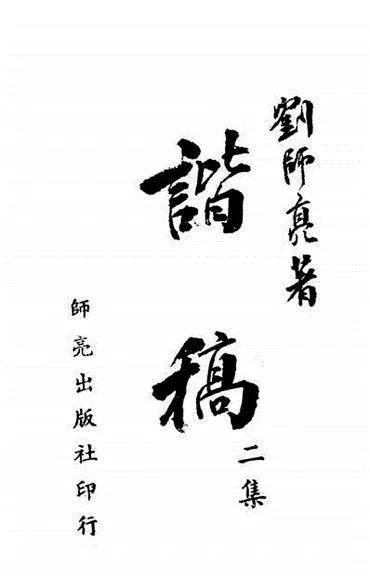 劉師亮著
諧稿
二集
師亮出版社印行